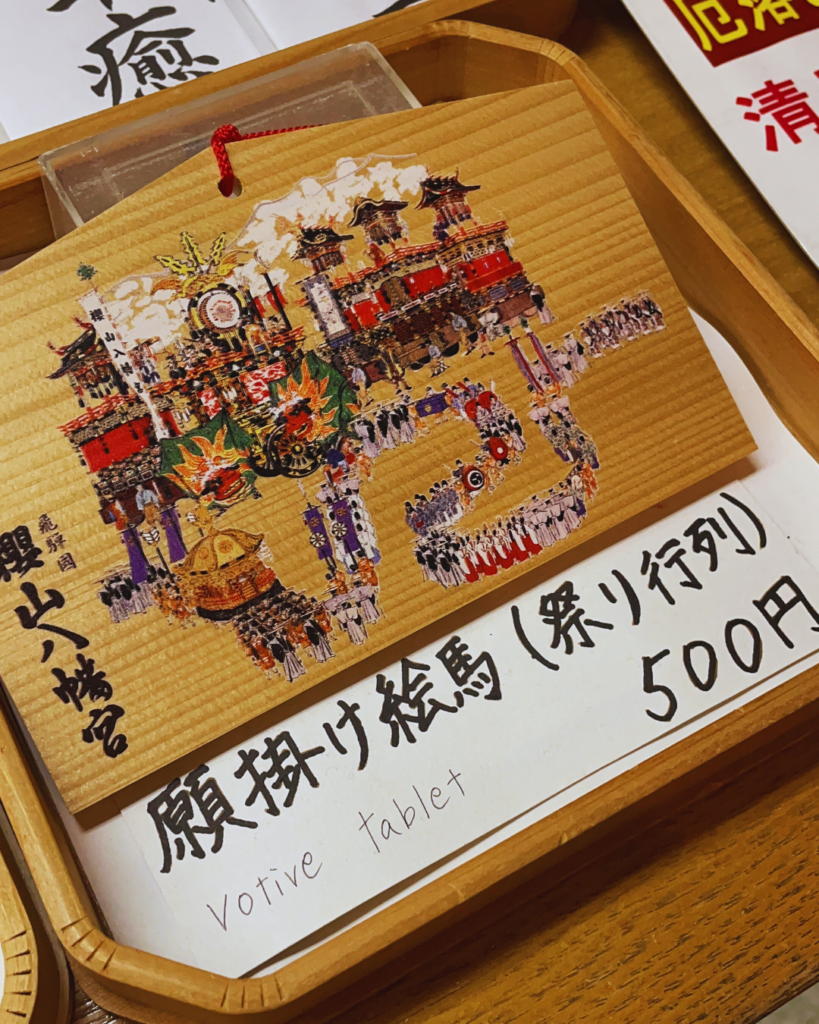 癒
厄落
清
櫻山八幡
飛騨國
櫻山八幡宮
願掛け絵馬(祭り行列)
500円
votive tablet